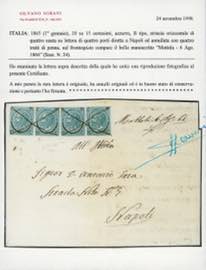 SILVANO SORANI
24 novembre 1998
ITALIA: 1865 (1° gennaio), 20 su 15 centesimi, azzurro, II tipo, striscia orizzontale di
quattro usata su lettera di quattro porti diretta a Napoli ed annullata con quattro
tratti di penna, sul frontespizio compare il bollo manoscritto "Mottola - 6 Ago.
1866" (Sass. N. 24).
Ho esaminato la lettera sopra descritta della quale ho unito una riproduzione fotografica al
presente Certificato.
A mio parere la rara lettera è originale, ha annulli originali ed è in buono stato di conserva-
zione e pertanto l'ho firmata.
Mottola 6 Ago 66
All'
Signor D. Antonio
Strada
Napoli